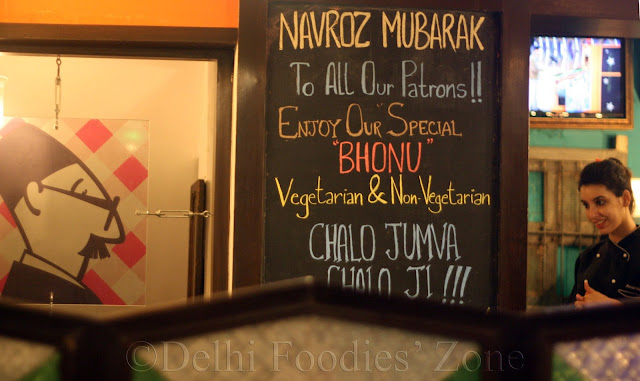 NAVROZ MUBARAK
TO ALL OUR PATRONS!!
ENJOY OUR "SPECIAL
"BHONU"
VEGETARIAN & NON-VEGETARIAN
CHALO JUMVA
CHALO JI !!!
©Delhi Foodies' Zone